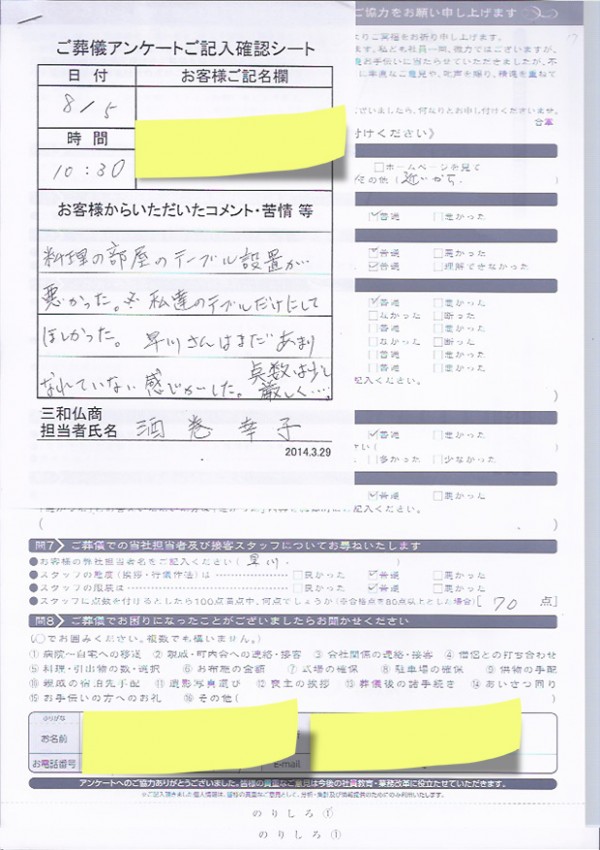 ご協力をお願い申し上げます
ご葬儀アンケートご記入確認シート
日 付
お客様ご記名欄
8/5
時 間
10:30
お客様からいただいたコメント・苦情 等
料理の部屋のテーブル設置が
悪かった。※私達のテーブルだけにして
ほしかった。 早川さんはまだあまり
なれていない感じがした。点数は少し
厳しく…。
三和仏商
担当者氏名 酒巻幸子
2014.3.29
付けください》
□ホームページを見て
の他(近いから
普通 □悪かった
普通 □悪かった
普通 □理解できなかった
普通 □悪かった
□なかった □断った
普通 □悪かった
□なかった □断った
普通 □悪かった
普通 □悪かった
記入ください。
普通 □悪かった
□多かった □少なかった
普通 □悪かった
記入ください。
問7 ご葬儀での当社担当者及び接客スタッフについてお尋ねいたします
●お客様の弊社担当者名をご記入ください(早川 )
●スタッフの態度(挨拶・行儀作法)は □良かった ☑普通 □悪かった
●スタッフの服装は □良かった ☑普通 □悪かった
●スタッフに点数を付けるとしたら100点満点中、何点でしょうか(※合格点を80点以上とした場合)[ 70 点]
問8 ご葬儀でお困りになったことがございましたらお聞かせください
(○でお囲みください。複数でも構いません。)
①病院〜自宅への移送 ②親戚・町内会への連絡・接客 ③会社関係の連絡・接客 ④僧侶との打ち合わせ
⑤料理・引出物の数・選択 ⑥お布施の金額 ⑦式場の確保 ⑧駐車場の確保 ⑨供物の手配
⑩親戚の宿泊先手配 ⑪遺影写真選び ⑫喪主の挨拶 ⑬葬儀後の諸手続き ⑭あいさつ回り
⑮お手伝いの方へのお礼 ⑯その他( )
ふりがな
お名前
お電話番号
E-mail
アンケートへのご協力ありがとうございました。皆様の貴重なご意見は今後の社員教育・業務改革に役立たせていただきます。
のりしろ①
のりしろ①